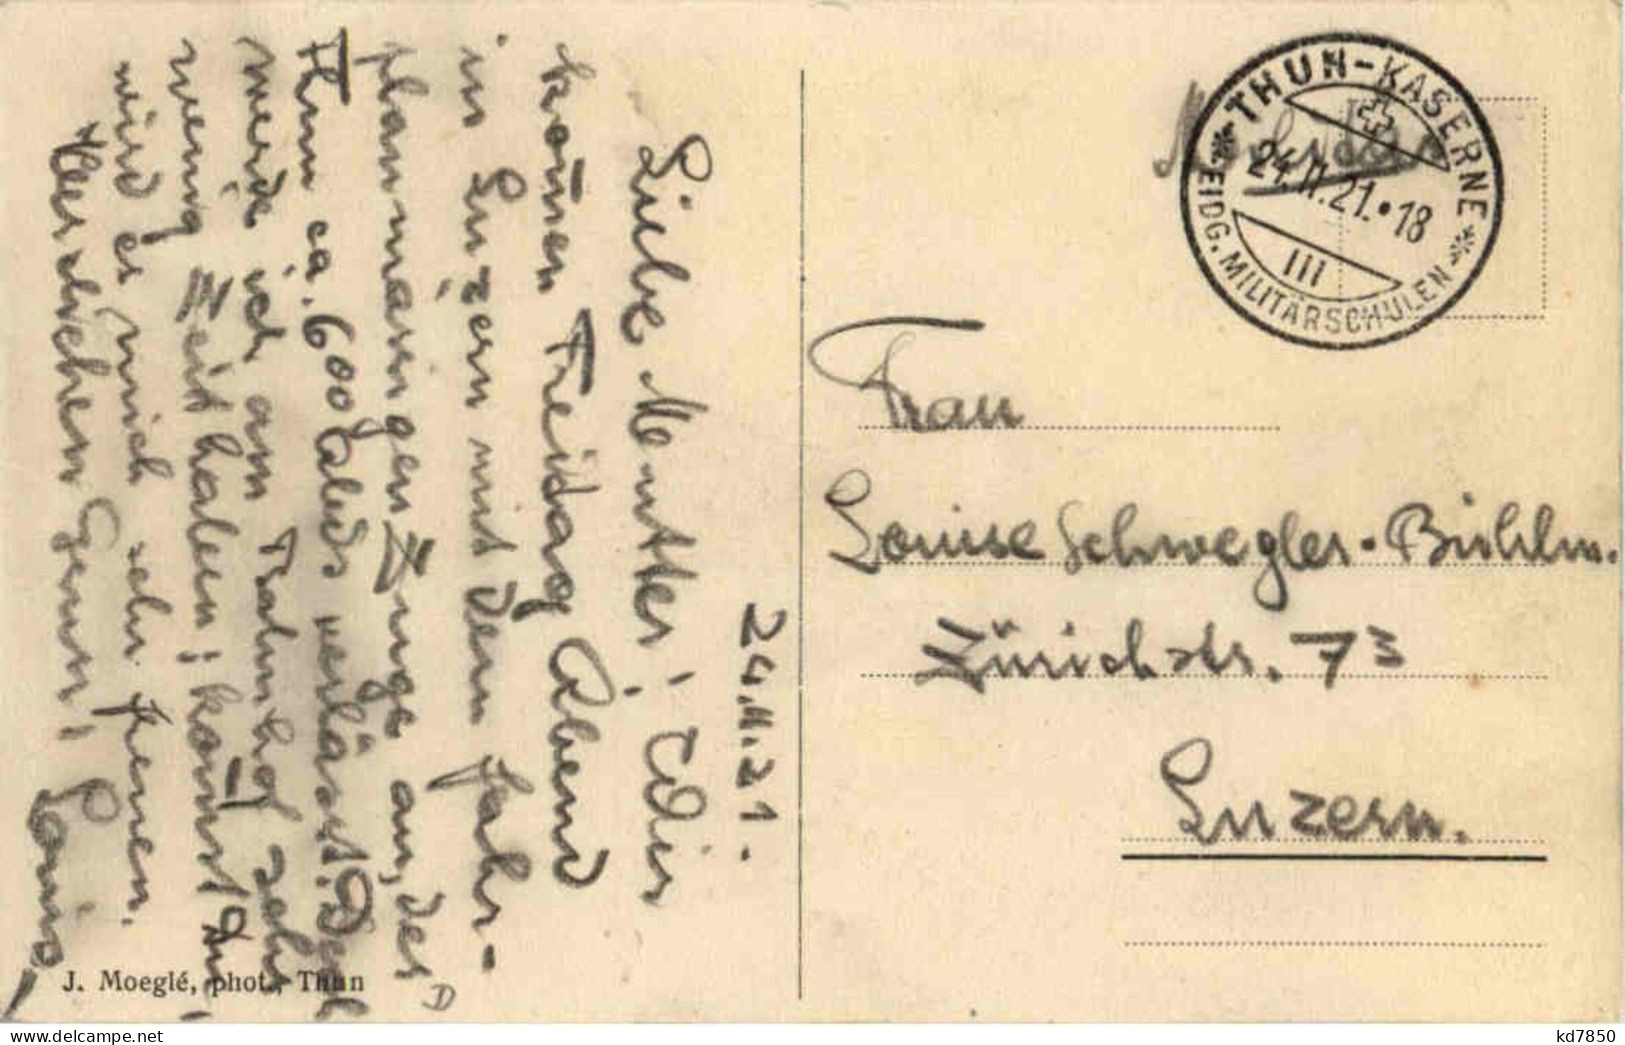 24.II.21.
Liebe Mutter! Wir
kom̄en Freitag Abend
in Luzern mit dem fahr-
planmässigen Zuge an, der
Thun ca. 600 Abds verlässt. Da
werde ich am Bahnhof sehr
wenig Zeit haben; kom̄st Du
wird es mich sehr freuen.
Herzlichen Gruss! Louis!
J. Moeglé, phot., Thun
THUN-KASERNE
24.II.21.•18
III
EIDG. MILITÄRSCHULEN
Frau
Louise Schwegler-Bühlm.
Zürichstr. 73
Luzern.
kd7850